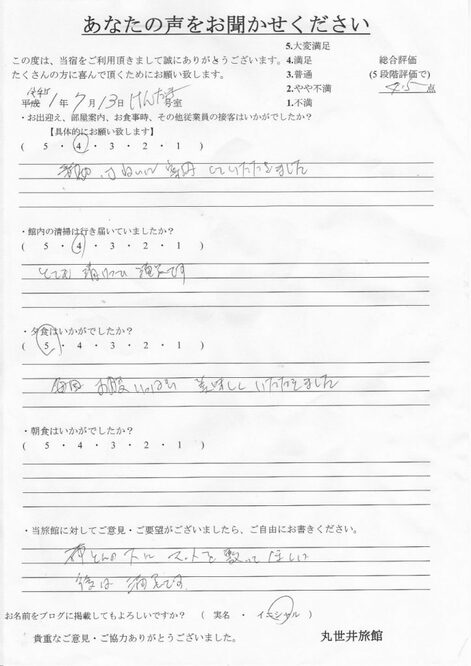 あなたの声をお聞かせください
この度は、当宿をご利用頂きまして誠にありがとうございます。
たくさんの方に喜んで頂くためにお願い致します。
5.大変満足
4.満足
3.普通
2.やや不満
1.不満
総合評価
(5段階評価で)
4.5点
平成 1年7月13日 けんたき号室
・お出迎え、部屋案内、お食事時、その他従業員の接客はいかがでしたか?
【具体的にお願い致します】
( 5 ・ 4 ・ 3 ・ 2 ・ 1 )
ていねいに 案内していただきました
・館内の清掃は行き届いていましたか?
( 5 ・ 4 ・ 3 ・ 2 ・ 1 )
とても 満足です
・夕食はいかがでしたか?
( 5 ・ 4 ・ 3 ・ 2 ・ 1 )
毎回 お腹いっぱい 美味しくいただきました
・朝食はいかがでしたか?
( 5 ・ 4 ・ 3 ・ 2 ・ 1 )
・当旅館に対してご意見・ご要望がございましたら、ご自由にお書きください。
下に マットを敷いてほしい
後は 満足です
お名前をブログに掲載してもよろしいですか? ( 実名 ・ イニシャル )
貴重なご意見・ご協力ありがとうございました。
丸世井旅館